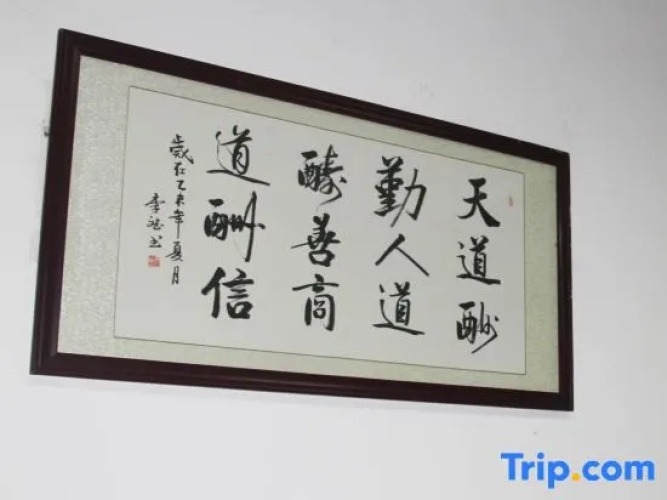 天道酬
勤人道
酬善商
道酬信
歲在乙未年夏月
李
书
Trip.com